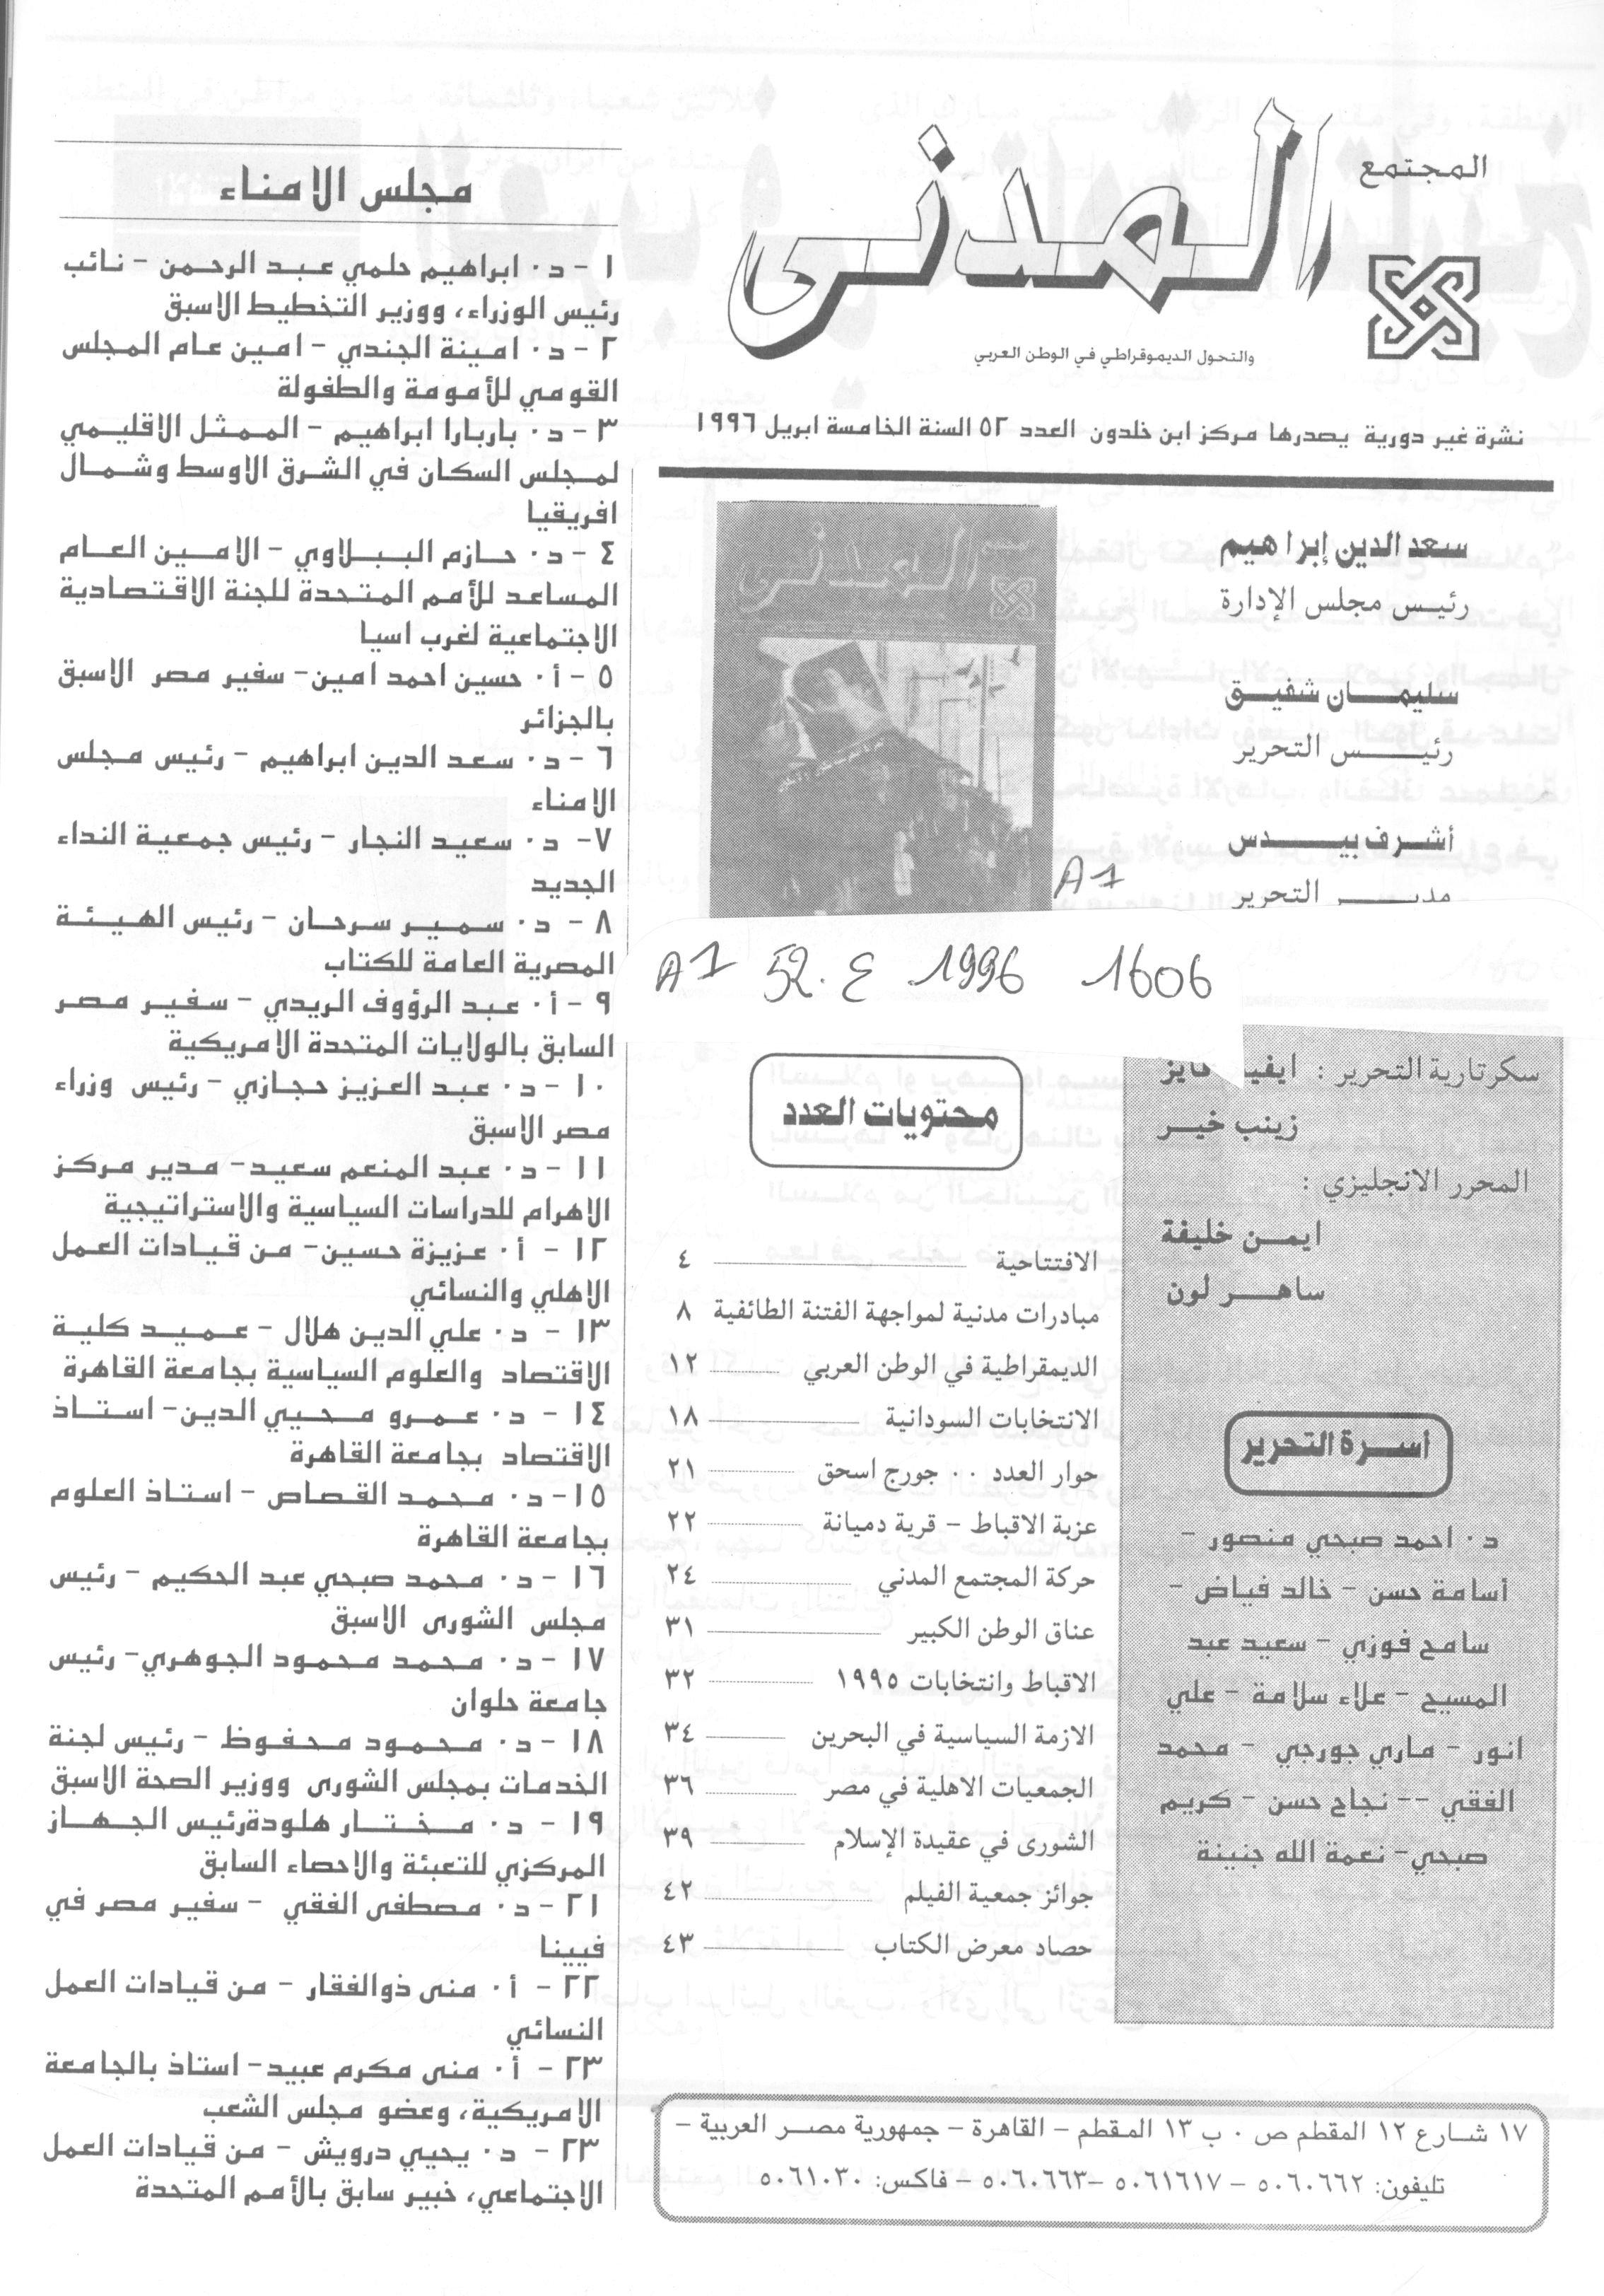 المجتمع
المدنى
والتحول الديموقراطي في الوطن العربي
نشرة غير دورية يصدرها مركز ابن خلدون العدد ٥٢ السنة الخامسة ابريل ١٩٩٦
سعد الدين إبراهيم
رئيس مجلس الإدارة
سليمان شفيق
رئيس التحرير
أشرف بيدس
مدير التحرير
المدنى
A1
A1 52. ع 1996 1606
سكرتارية التحرير :
زينب خير
المحرر الانجليزي :
ايمن خليفة
ساهر لون
أسرة التحرير
د٠ احمد صبحي منصور -
أسامة حسن - خالد فياض -
سامح فوزي - سعيد عبد
المسيح - علاء سلامة - علي
انور - ماري جورجي - محمد
الفقي -- نجاح حسن - كريم
صبحي- نعمة الله جنينة
محتويات العدد
الافتتاحية ٤
مبادرات مدنية لمواجهة الفتنة الطائفية ٨
الديمقراطية في الوطن العربي ١٢
الانتخابات السودانية ١٨
حوار العدد ٠٠ جورج اسحق ٢١
عزبة الاقباط - قرية دميانة ٢٢
حركة المجتمع المدني ٢٤
عناق الوطن الكبير ٣١
الاقباط وانتخابات ١٩٩٥ ٣٢
الازمة السياسية في البحرين ٣٤
الجمعيات الاهلية في مصر ٣٦
الشورى في عقيدة الإسلام ٣٩
جوائز جمعية الفيلم ٤٢
حصاد معرض الكتاب ٤٣
١٧ شارع ١٢ المقطم ص ٠ ب ١٣ المقطم - القاهرة - جمهورية مصر العربية -
تليفون: ٥٠٦٠٦٦٢ - ٥٠٦١٦١٧ -٥٠٦٠٦٦٣ - فاكس: ٥٠٦١٠٣٠
مجلس الامناء
١ - د٠ ابراهيم حلمي عبد الرحمن - نائب
رئيس الوزراء، ووزير التخطيط الاسبق
٢ - د٠ امينة الجندي - امين عام المجلس
القومي للأمومة والطفولة
٣ - د٠ باربارا ابراهيم - الممثل الاقليمي
لمجلس السكان في الشرق الاوسط وشمال
افريقيا
٤ - د٠ حازم الببلاوي - الامين العام
المساعد للأمم المتحدة للجنة الاقتصادية
الاجتماعية لغرب اسيا
٥ - أ٠ حسين احمد امين- سفير مصر الاسبق
بالجزائر
٦ - د٠ سعد الدين ابراهيم - رئيس مجلس
الامناء
٧- د٠ سعيد النجار - رئيس جمعية النداء
الجديد
٨ - د٠ سمير سرحان - رئيس الهيئة
المصرية العامة للكتاب
٩ - أ٠ عبد الرؤوف الريدي - سفير مصر
السابق بالولايات المتحدة الامريكية
١٠ - د٠ عبد العزيز حجازي - رئيس وزراء
مصر الاسبق
١١ - د٠ عبد المنعم سعيد- مدير مركز
الاهرام للدراسات السياسية والاستراتيجية
١٢ - أ٠ عزيزة حسين- من قيادات العمل
الاهلي والنسائي
١٣ - د٠ علي الدين هلال - عميد كلية
الاقتصاد والعلوم السياسية بجامعة القاهرة
١٤ - د٠ عمرو محيي الدين- استاذ
الاقتصاد بجامعة القاهرة
١٥- د٠ محمد القصاص - استاذ العلوم
بجامعة القاهرة
١٦ - د٠ محمد صبحي عبد الحكيم - رئيس
مجلس الشورى الاسبق
١٧ - د٠ محمد محمود الجوهري- رئيس
جامعة حلوان
١٨ - د٠ محمود محفوظ - رئيس لجنة
الخدمات بمجلس الشورى ووزير الصحة الاسبق
١٩ - د٠ مختار هلودةرئيس الجهاز
المركزي للتعبئة والاحصاء السابق
٢١ - د٠ مصطفى الفقي - سفير مصر في
فيينا
٢٢ - أ٠ منى ذوالفقار - من قيادات العمل
النسائي
٢٣ - أ٠ منى مكرم عبيد- استاذ بالجامعة
الامريكية، وعضو مجلس الشعب
٢٣ - د٠ يحيي درويش - من قيادات العمل
الاجتماعي، خبير سابق بالأمم المتحدة